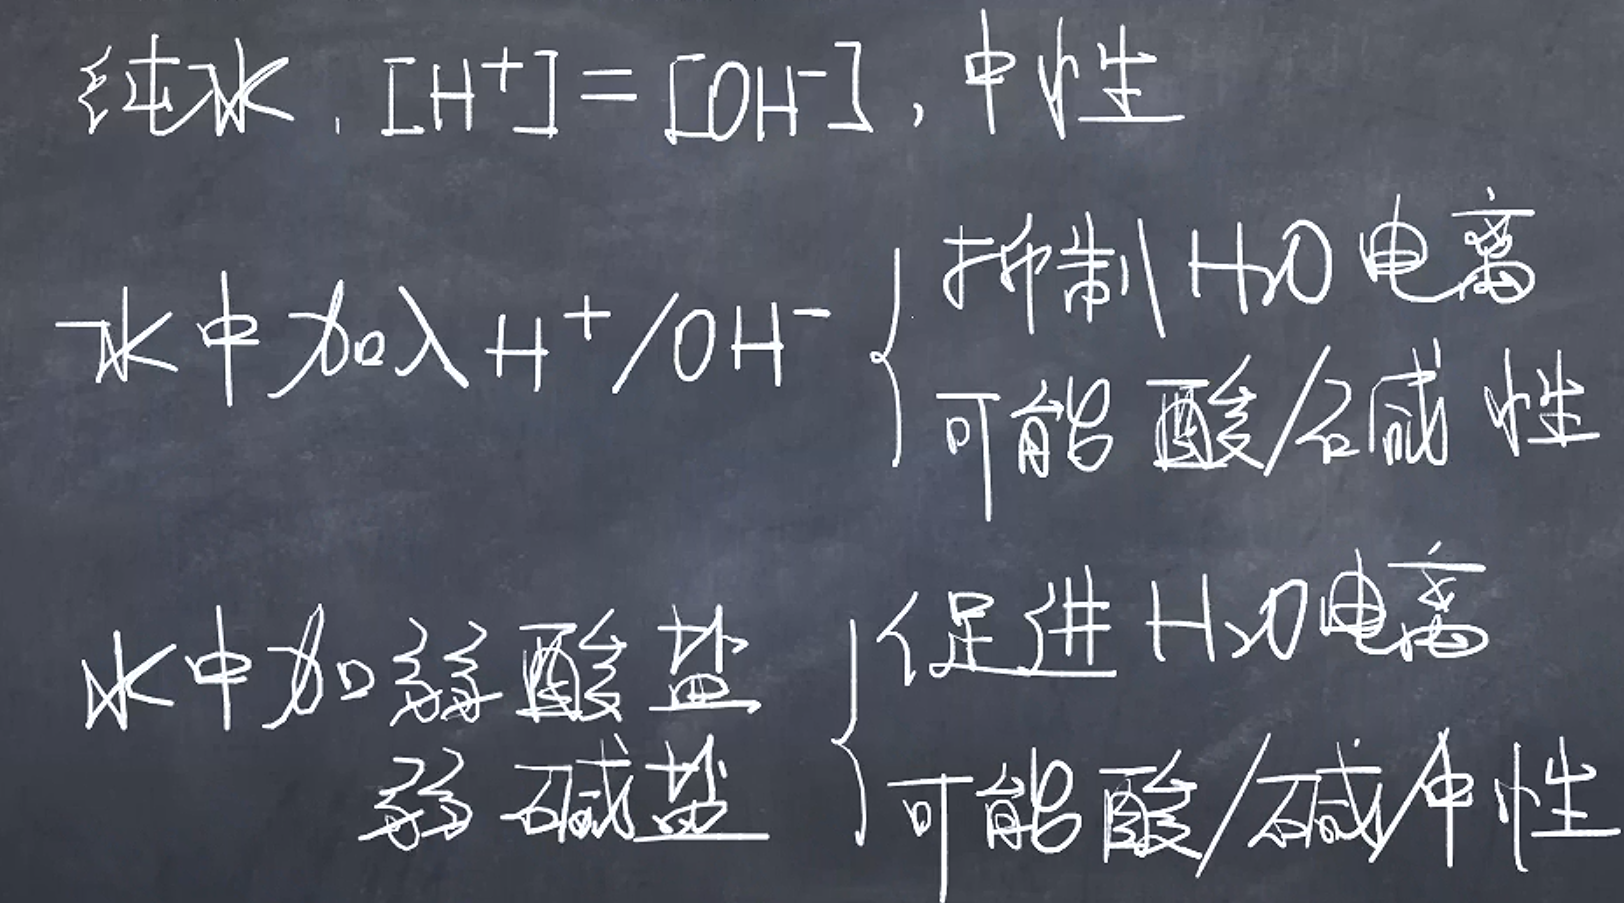 纯水，[H⁺]=[OH⁻]，中性
水中加入H⁺/OH⁻
抑制H₂O电离
可能酸/碱性
水中加弱酸盐
弱碱盐
促进H₂O电离
可能酸/碱/中性